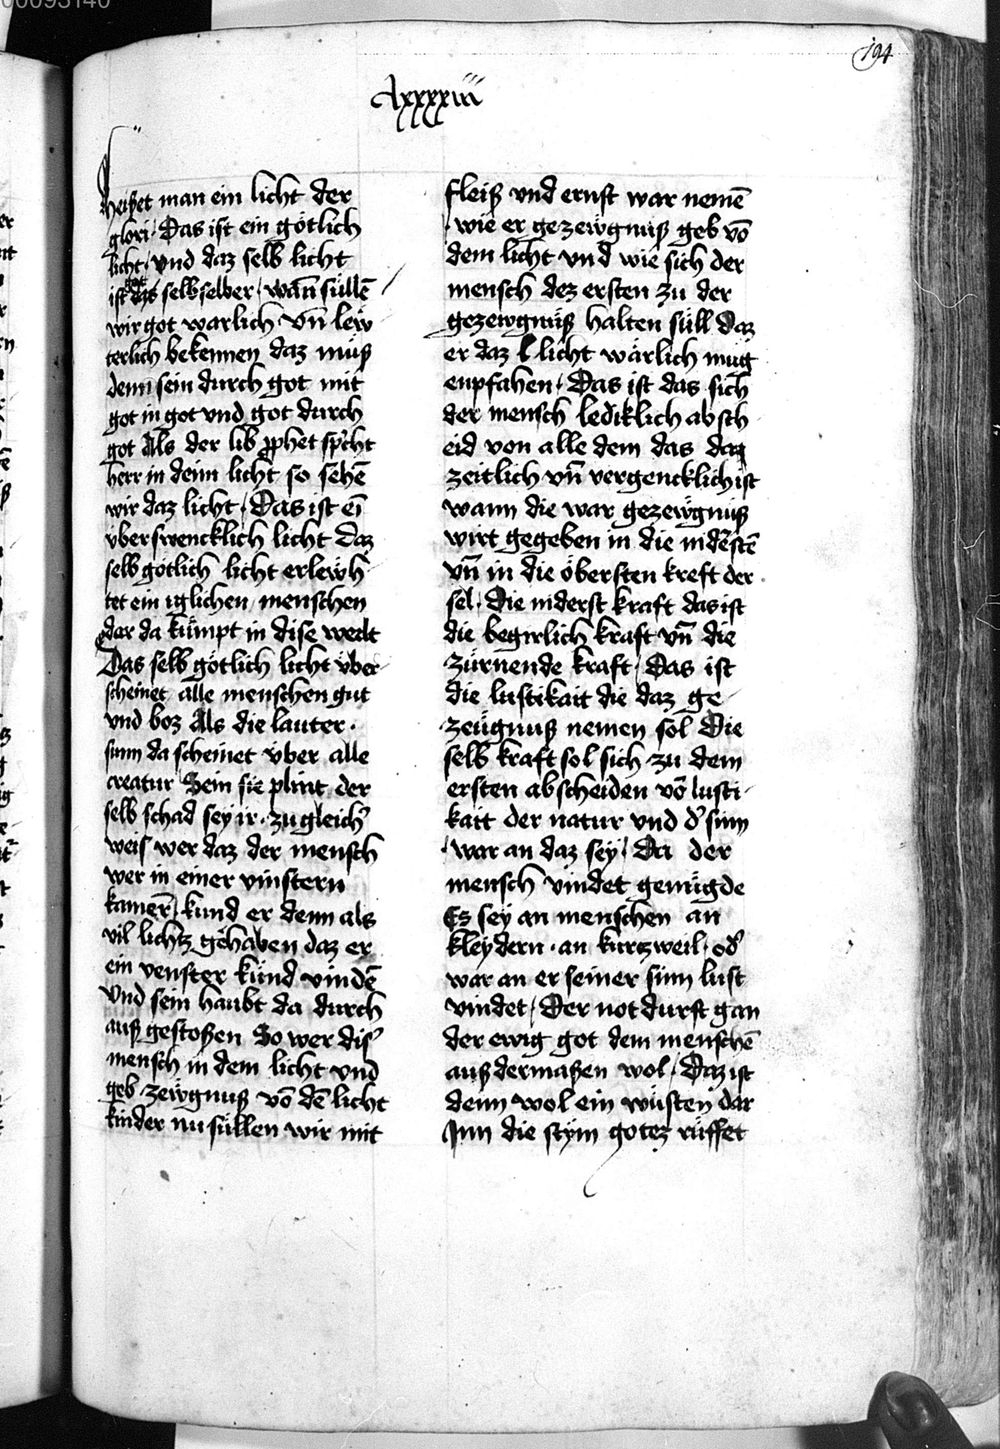 194
lxxxxiii
heisset man ein licht der
glori · Das ist ein götlich
licht · vnd daz selb licht
ist got selb selber / wañ süllē
wir got warlich vñ lew
terlich bekennen daz müß
denn sein durch got mit
got in got vnd got durch
got Als der lib ꝓphet spͥcht
herr in deim licht so sehē
wir daz licht / Das ist eī
vberswencklich licht daz
selb götlich licht erlewh
tet ein iglichen menschen
dar da kümpt in dise werlt
Das selb götlich licht vber
scheinet alle menschen gut
vnd boz Als die lauter ·
sunn da scheinet vber alle
creatur Sein sie plint der
selb schad sey ir · zu gleich͛
weis wer daz der mensch
wer in einer vinstern
kamer / kund er denn als
vil lichtz gehaben daz er
ein venster künd vindē
Vnd sein haubt da durch
auß gestoßen So wer dis͛
mensch in dem licht vnd
geb zewgnuß vō dē licht
kinder nu süllen wir mit
fleiß vnd ernst war nemē
· wie er gezewgnuß geb vō
dem licht vnd wie sich der
mensch dez ersten zu der
gezewgnuß halten süll daz
er daz licht wärlich müg
enpfahen · Das ist das sich
der mensch lediklich absch
eid von alle dem das daz
zeitlich vñ vergencklich ist
wann die war gezewgnuß
wirt gegeben in die nidersten
vñ in die öbersten kreft der
sel · Die niderst kraft das ist
die begirlich kraft vñ die
zürnende kraft / Das ist
die lustikait die daz ge
zeugnuß nemen sol Die
selb kraft sol sich zu dem
ersten abscheiden vō lusti
kait der natur vnd d͛ sinn
· war an daz sey / Da der
mensch vindet genügde
Ez sey an menschen an
kleydern · an kurtzweil · od͛
war an er seiner sinn lust
vindet / Der notdurft gan
der ewig got dem menschē
auß dermaßen wol / Daz ist
denn wol ein wüsten dar
Jnn die stym gotez rüffet